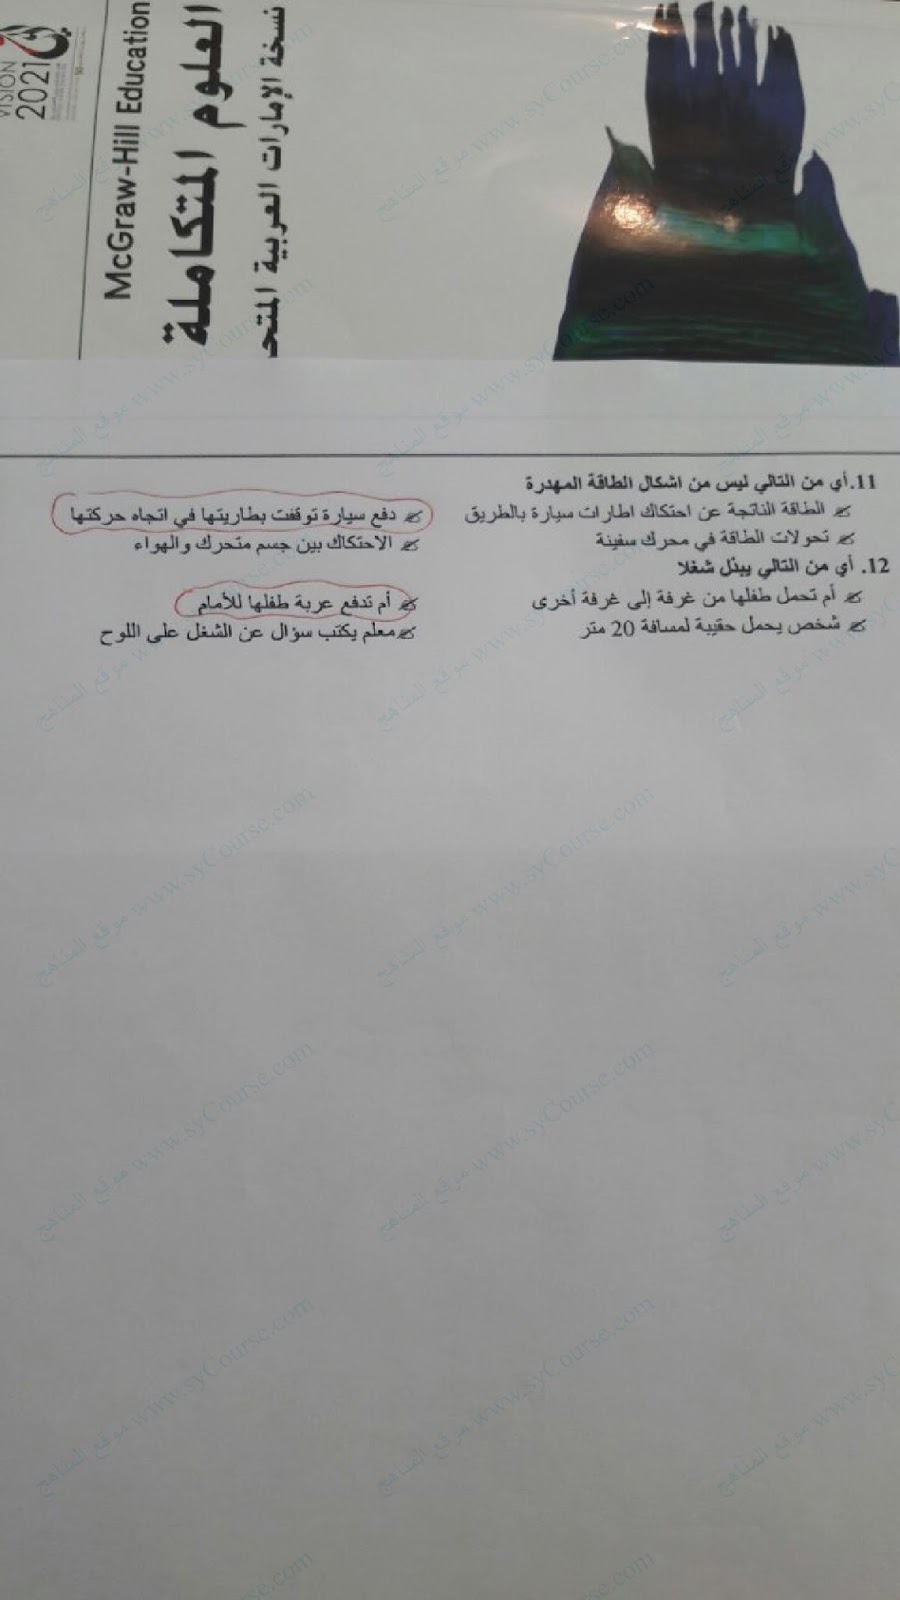 VISION
2021
McGraw-Hill Education
العلوم المتكاملة
نسخة الإمارات العربية المتحد
11.أي من التالي ليس من اشكال الطاقة المهدرة
الطاقة الناتجة عن احتكاك اطارات سيارة بالطريق دفع سيارة توقفت بطاريتها في اتجاه حركتها
تحولات الطاقة في محرك سفينة الاحتكاك بين جسم متحرك والهواء
12. أي من التالي يبذل شغلا
أم تحمل طفلها من غرفة إلى غرفة أخرى أم تدفع عربة طفلها للأمام
شخص يحمل حقيبة لمسافة 20 متر معلم يكتب سؤال عن الشغل على اللوح
موقع المناهج www.syCourse.com